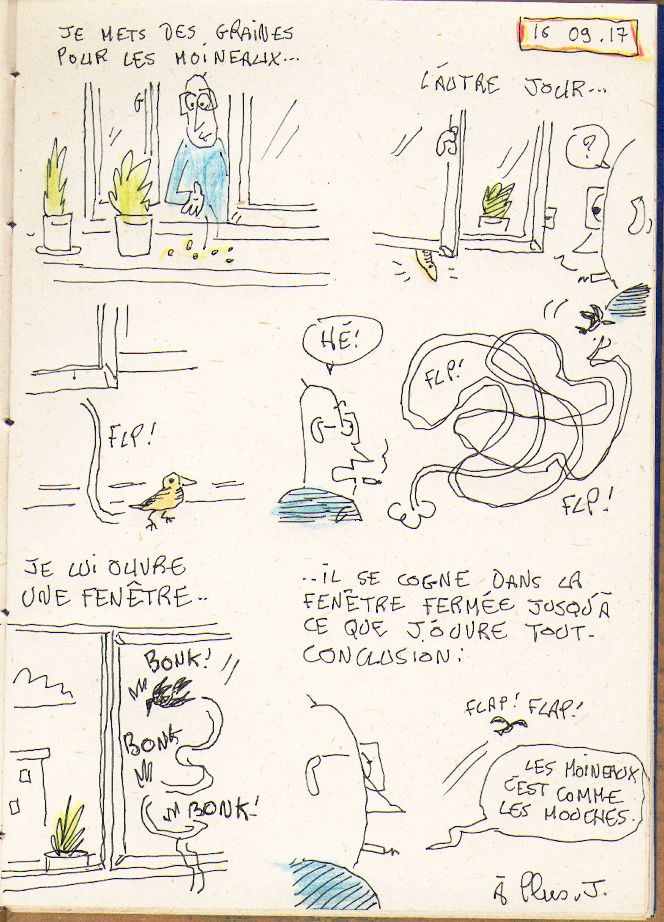 JE METS DES GRAINES
POUR LES MOINEAUX...
16 09.17
L'AUTRE JOUR...
?
HÉ!
FLP!
FLP!
FLP!
JE LUI OUVRE
UNE FENÊTRE..
..IL SE COGNE DANS LA
FENÊTRE FERMÉE JUSQU'À
CE QUE J'OUVRE TOUT.
CONCLUSION:
BONK!
BONK
BONK!
FLAP! FLAP!
LES MOINEAUX
C'EST COMME
LES MOUCHES.
À Plus. J.